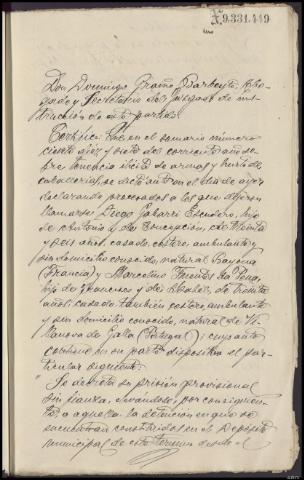 N 9.331.449
Don Domingo Graiño Barbeyto, Abo-
gado y Secretario del Juzgado de ins-
trucción de este partido.
Certifico: Que en el sumario número
ciento diez y siete del corriente año so-
bre tenencia ilícita de armas y hurto de
caballerías, se dictó auto en el día de ayer
declarando procesados a los que dijeron
llamarse Diego Gabarri Escudero, hijo
de Antonio y de Concepción, de treinta
y seis años, casado, cestero, ambulante y
sin domicilio conocido, natural Bayona
(Francia), y Marcelino Fuentes da Pena,
hijo de Francisco y de Isabel, de treinta
años, casado, también cestero, ambulante
y sin domicilio conocido, natural de Vi-
llanova de Gaya (Portugal); cuyo auto
contiene en su parte dispositiva el par-
ticular siguiente:
"Se decreta su prisión provisional
sin fianza, elevándose, por consiguien-
te, a aquella la detención en que se
encuentran constituidos en el Depósito
municipal de este término desde el